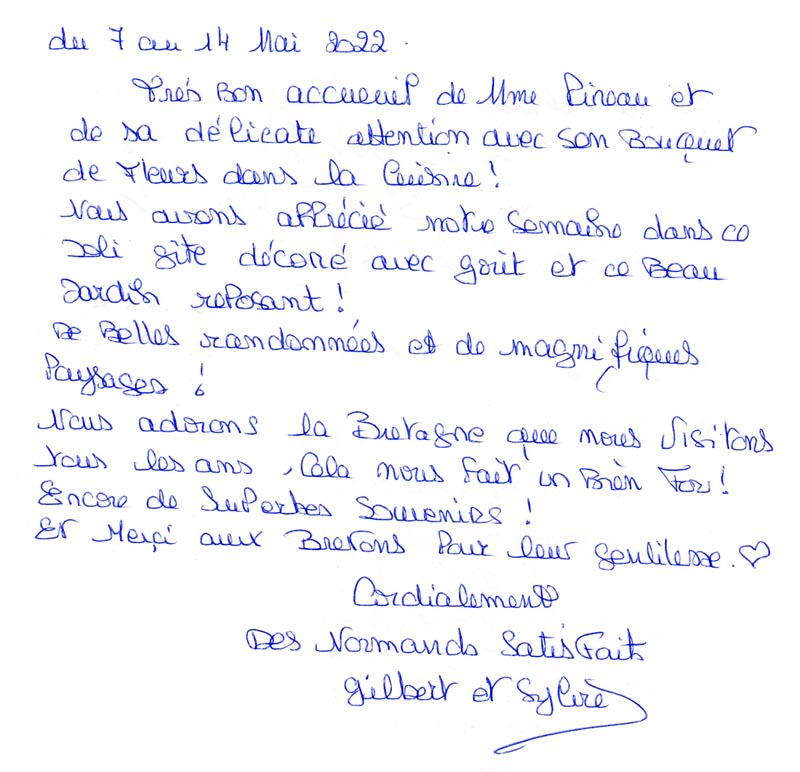 du 7 au 14 Mai 2022.
Très Bon accueil de Mme Pineau et
de sa délicate attention avec son Bouquet
de Fleurs dans la Cuisine !
Nous avons apprécié notre Semaine dans ce
Joli gîte décoré avec goût et ce Beau
Jardin reposant !
De Belles randonnées et de magnifiques
Paysages !
Nous adorons la Bretagne que nous visitons
tous les ans, Cela nous fait un Bien Fou !
Encore de Superbes Souvenirs !
Et Merçi aux Bretons Pour leur gentilesse. ♡
Cordialement
Des Normands Satisfaits
Gilbert et Sylvie